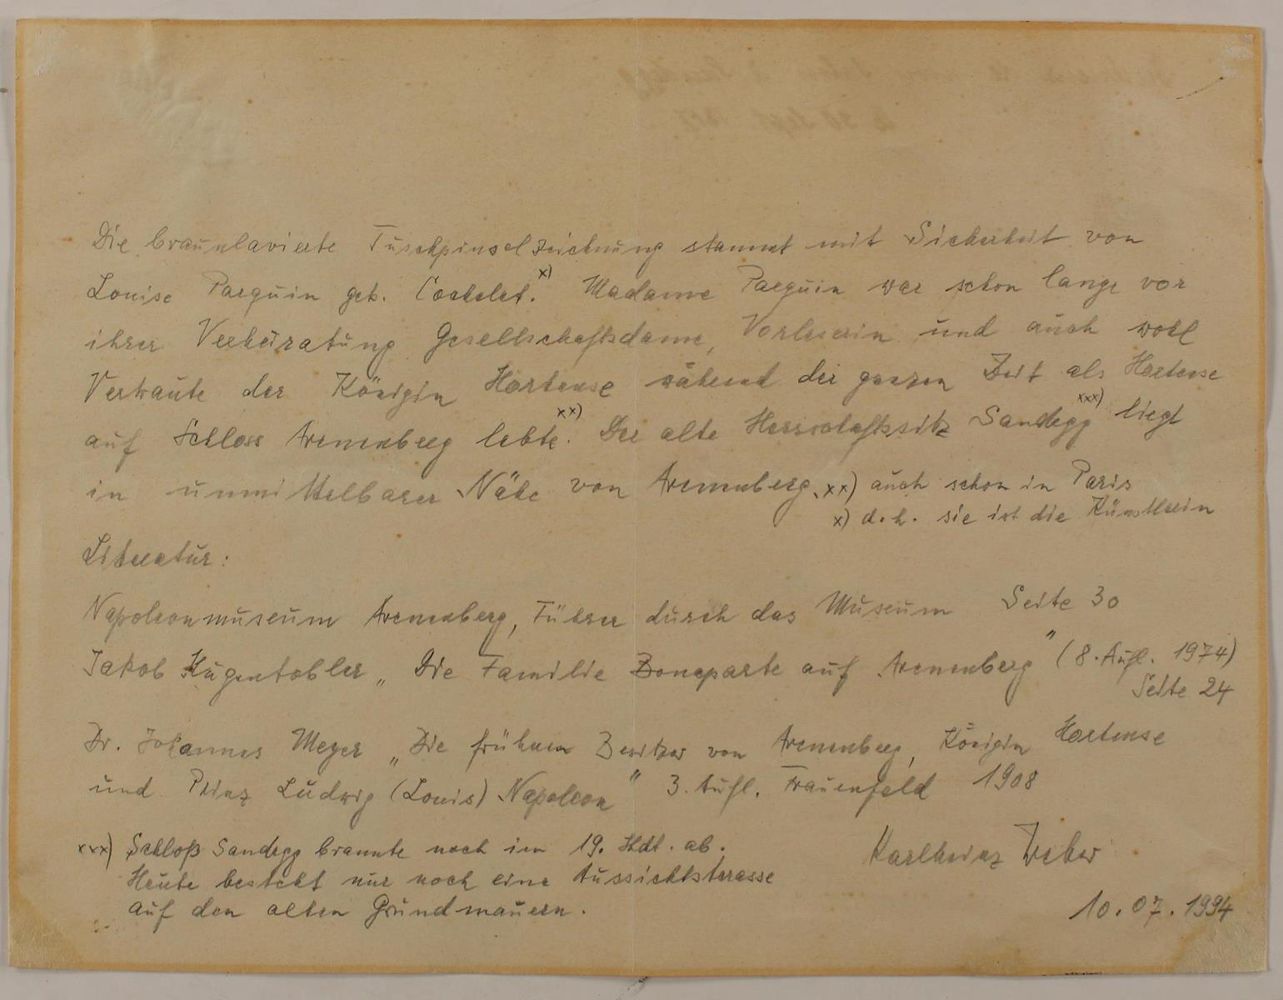 Die braunlavierte Tuschpinselzeichnung stammt mit Sicherheit von
Louise Parquin geb. Cochelet. x) Madame Parquin war schon lange vor
ihrer Verheiratung Gesellschaftsdame, Vorleserin und auch wohl
Vertraute der Königin Hortense während der ganzen Zeit als Hortense
auf Schloss Arenenberg lebte. xx) Der alte Herrschaftssitz Sandegg xxx) liegt
in unmittelbarer Nähe von Arenenberg. xx) auch schon in Paris
x) d.h. sie ist die Künstlerin
Literatur:
Napoleonmuseum Arenenberg, Führer durch das Museum Seite 30
Jakob Hugentobler „Die Familie Bonaparte auf Arenenberg" (8. Aufl. 1974)
Seite 24
Dr. Johannes Meyer „Die frühern Besitzer von Arenenberg, Königin Hortense
und Prinz Ludwig (Louis) Napoleon" 3. Aufl. Frauenfeld 1908
xxx) Schloß Sandegg brannte noch im 19. Jhdt. ab.
Heute besteht nur noch eine Aussichtsterasse
auf den alten Grundmauern.
Karlheinz Weber
10.07.1994